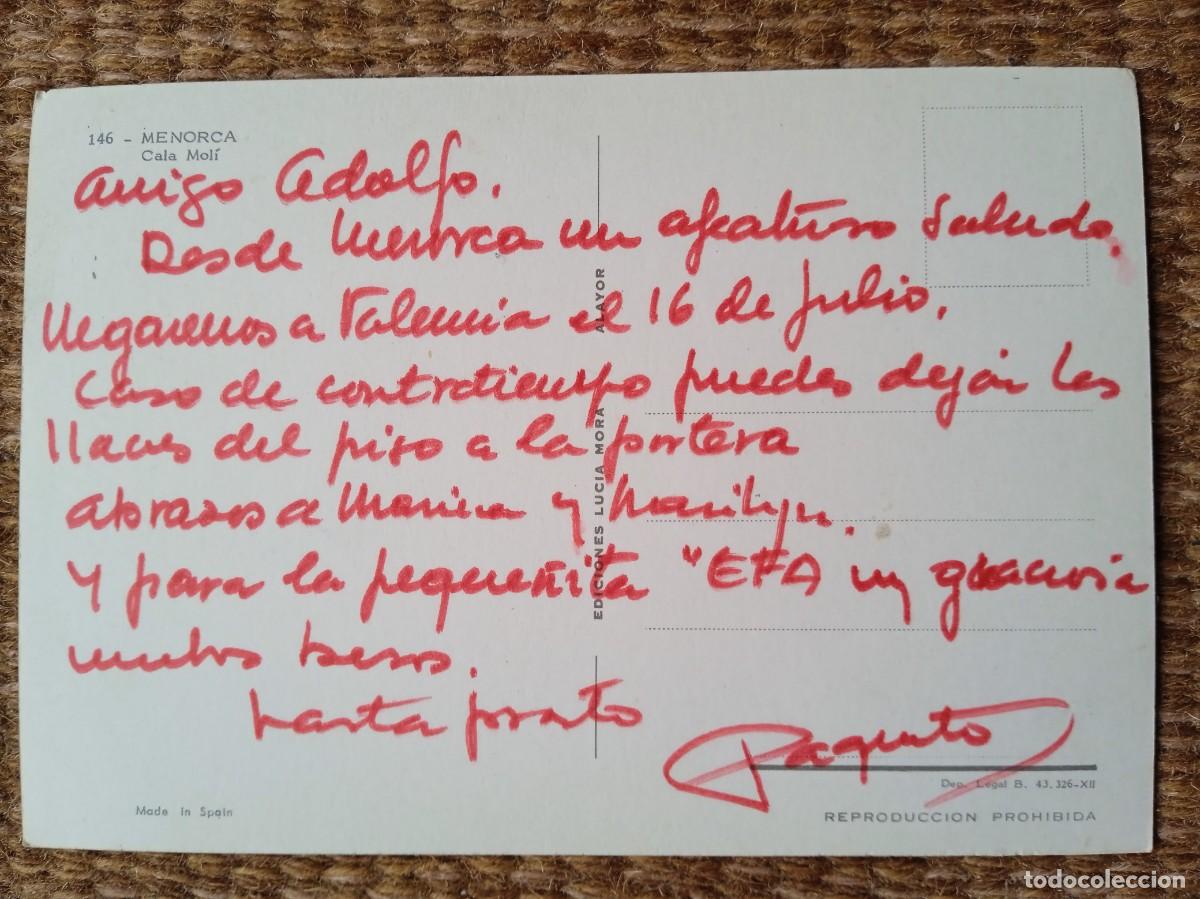 146 - MENORCA
Cala Molí
Amigo Adolfo.
Desde Menorca un afectuoso saludo.
llegaremos a Valencia el 16 de julio.
Caso de contratiempo puedes dejar las
llaves del piso a la portera
abrazos a Monica y Marilyn.
y para la pequeñita "EFA
muchos besos.
hasta pronto
Paquito
EDICIONES LUCIA MORA ALAYOR
Dep. Legal B. 43.326-XII
Made in Spain
REPRODUCCION PROHIBIDA
todocoleccion